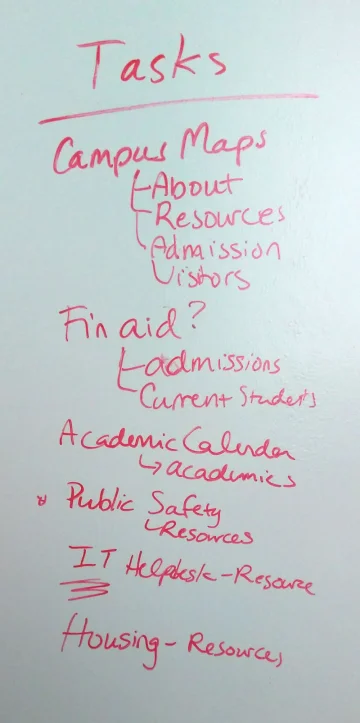 Tasks
Campus Maps
About
Resources
Admission
Visitors
Fin aid?
admissions
Current Students
Academic Calender
academics
Public Safety
Resources
IT Helpdesk-Resource
Housing-Resources